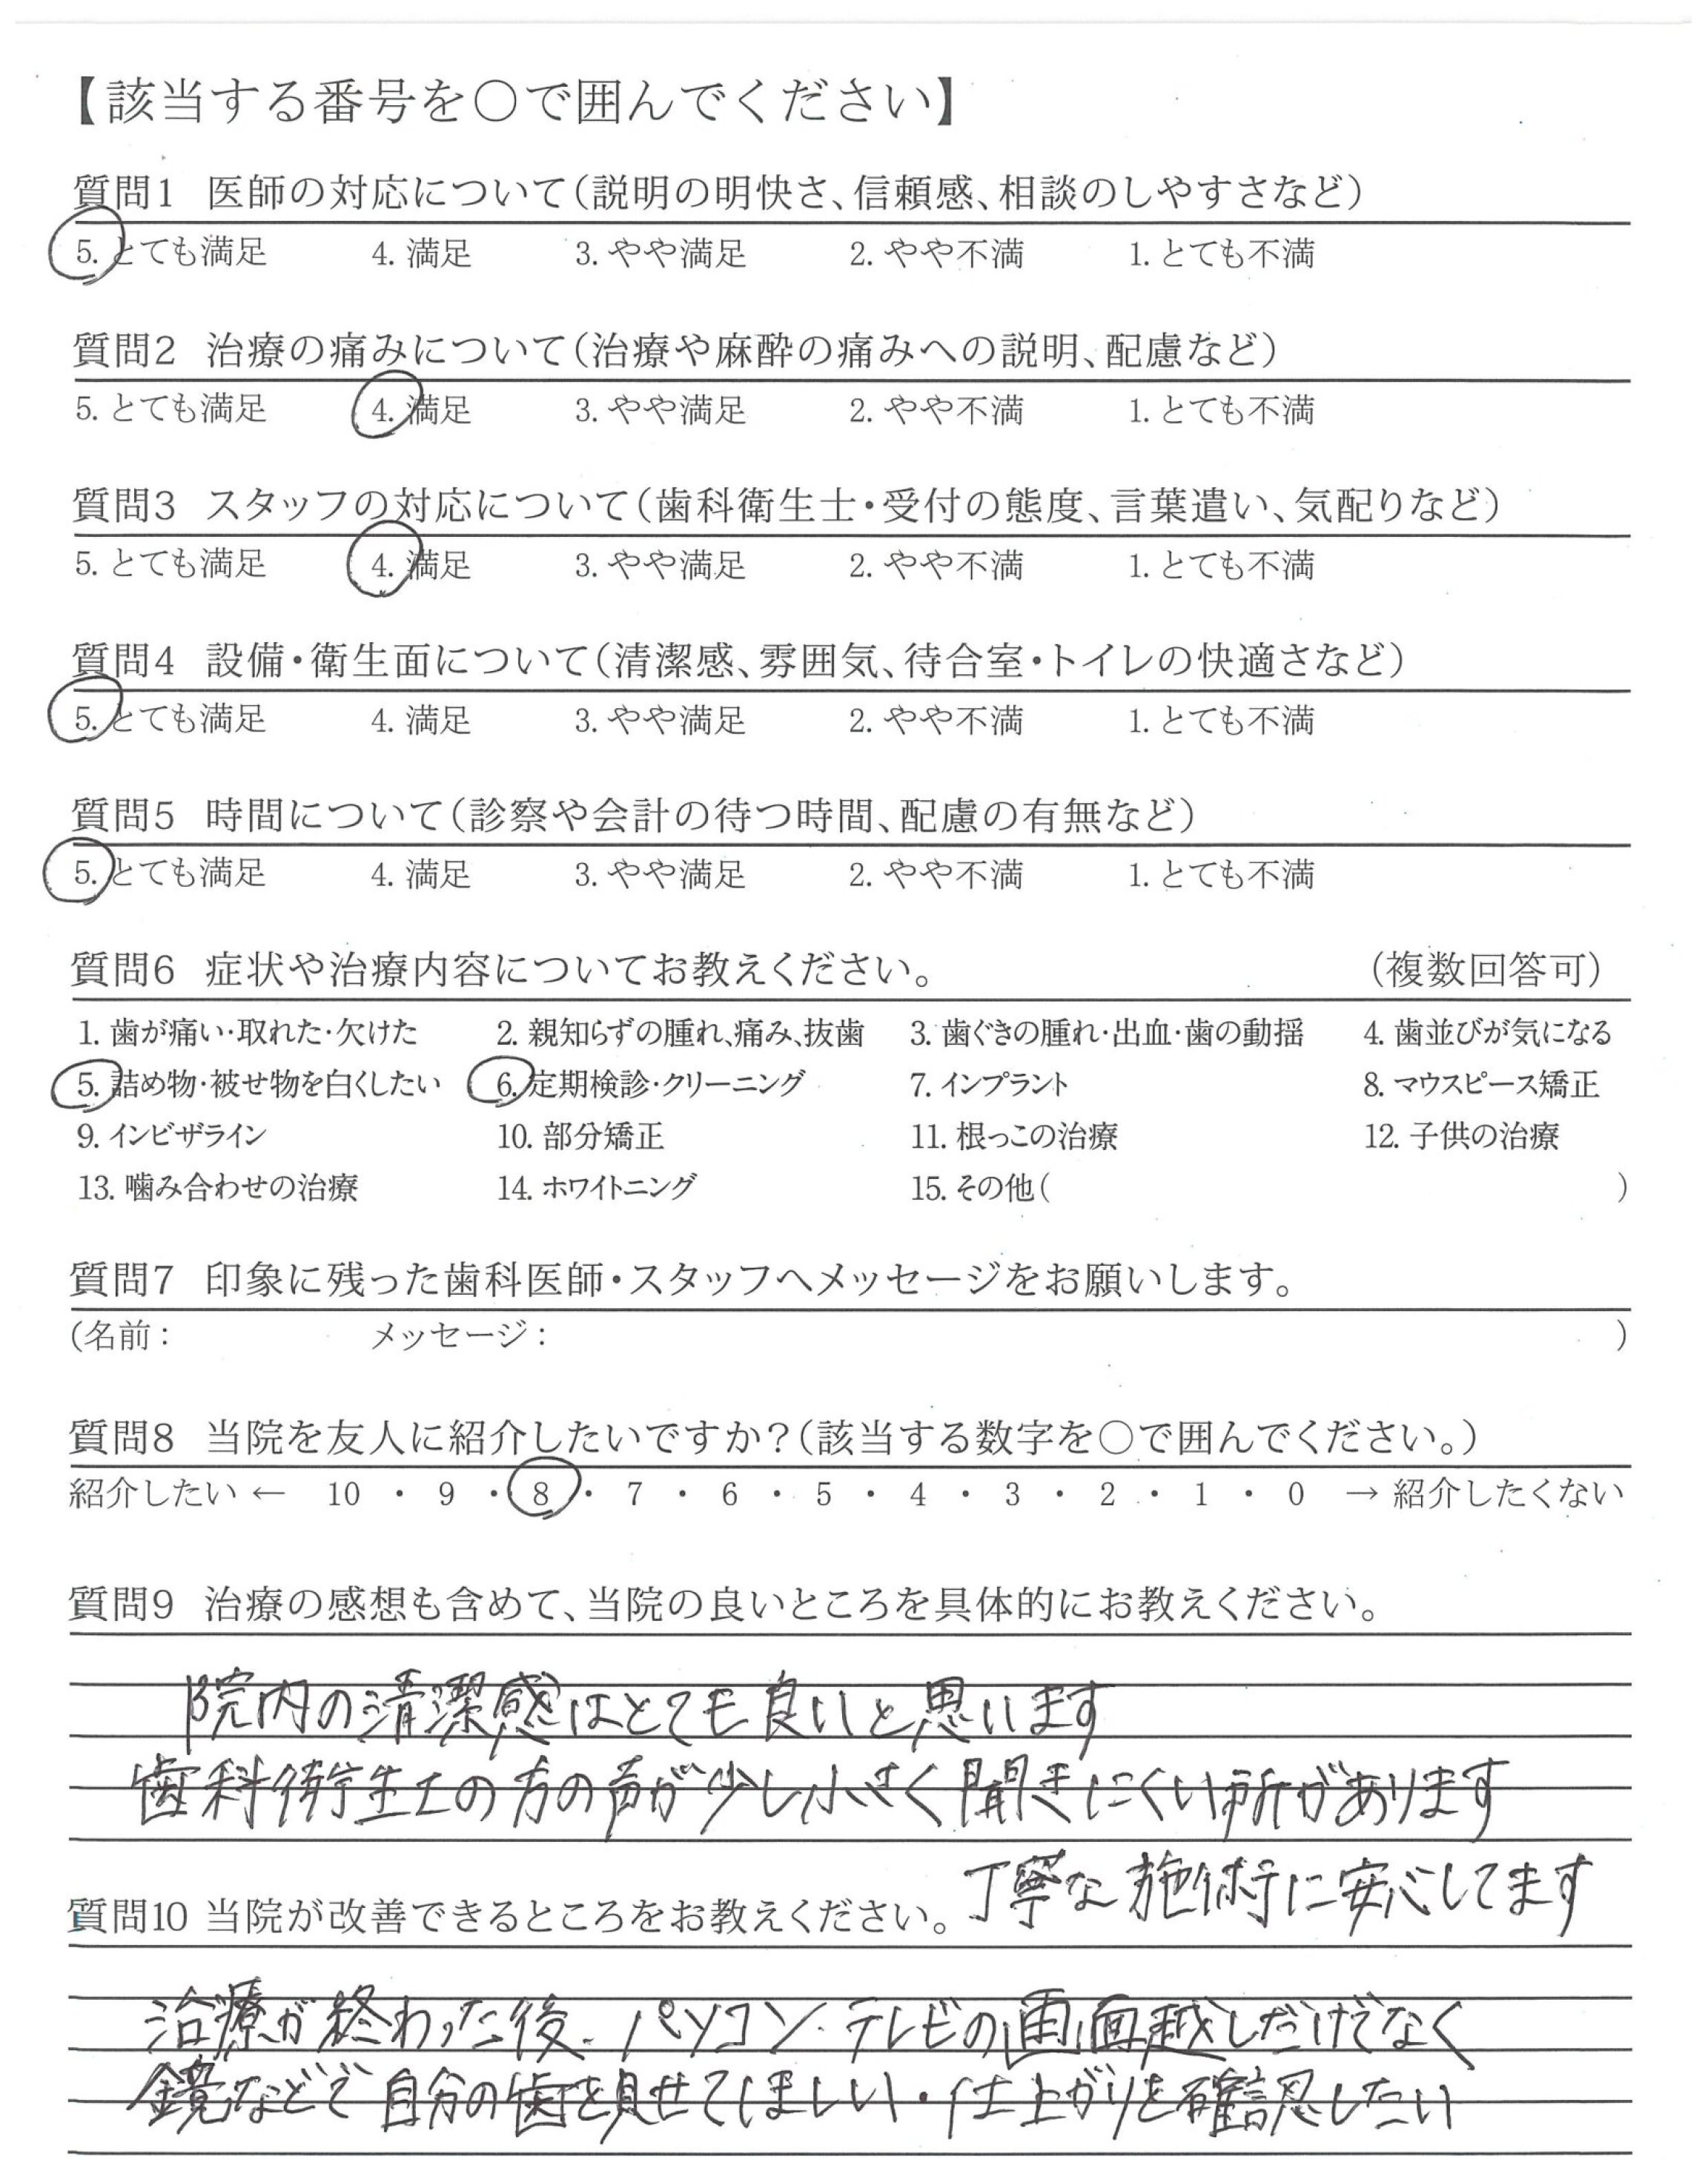 【該当する番号を〇で囲んでください】
質問1 医師の対応について(説明の明快さ、信頼感、相談のしやすさなど)
5. とても満足 4. 満足 3. やや満足 2. やや不満 1. とても不満
質問2 治療の痛みについて(治療や麻酔の痛みへの説明、配慮など)
5. とても満足 4. 満足 3. やや満足 2. やや不満 1. とても不満
質問3 スタッフの対応について(歯科衛生士・受付の態度、言葉遣い、気配りなど)
5. とても満足 4. 満足 3. やや満足 2. やや不満 1. とても不満
質問4 設備・衛生面について(清潔感、雰囲気、待合室・トイレの快適さなど)
5. とても満足 4. 満足 3. やや満足 2. やや不満 1. とても不満
質問5 時間について(診察や会計の待つ時間、配慮の有無など)
5. とても満足 4. 満足 3. やや満足 2. やや不満 1. とても不満
質問6 症状や治療内容についてお教えください。 (複数回答可)
1. 歯が痛い・取れた・欠けた 2. 親知らずの腫れ、痛み、抜歯 3. 歯ぐきの腫れ・出血・歯の動揺 4. 歯並びが気になる
5. 詰め物・被せ物を白くしたい 6. 定期検診・クリーニング 7. インプラント 8. マウスピース矯正
9. インビザライン 10. 部分矯正 11. 根っこの治療 12. 子供の治療
13. 噛み合わせの治療 14. ホワイトニング 15. その他( )
質問7 印象に残った歯科医師・スタッフへメッセージをお願いします。
(名前: メッセージ: )
質問8 当院を友人に紹介したいですか?(該当する数字を〇で囲んでください。)
紹介したい ← 10 ・ 9 ・ 8 ・ 7 ・ 6 ・ 5 ・ 4 ・ 3 ・ 2 ・ 1 ・ 0 → 紹介したくない
質問9 治療の感想も含めて、当院の良いところを具体的にお教えください。
院内の清潔感はとても良いと思います
歯科衛生士の方の声が少し小さく聞きにくい所があります
丁寧な施術に安心してます
質問10 当院が改善できるところをお教えください。
治療が終わった後、パソコン・テレビの画面越しだけでなく
鏡などで自分の歯を見せてほしい・仕上がりを確認したい